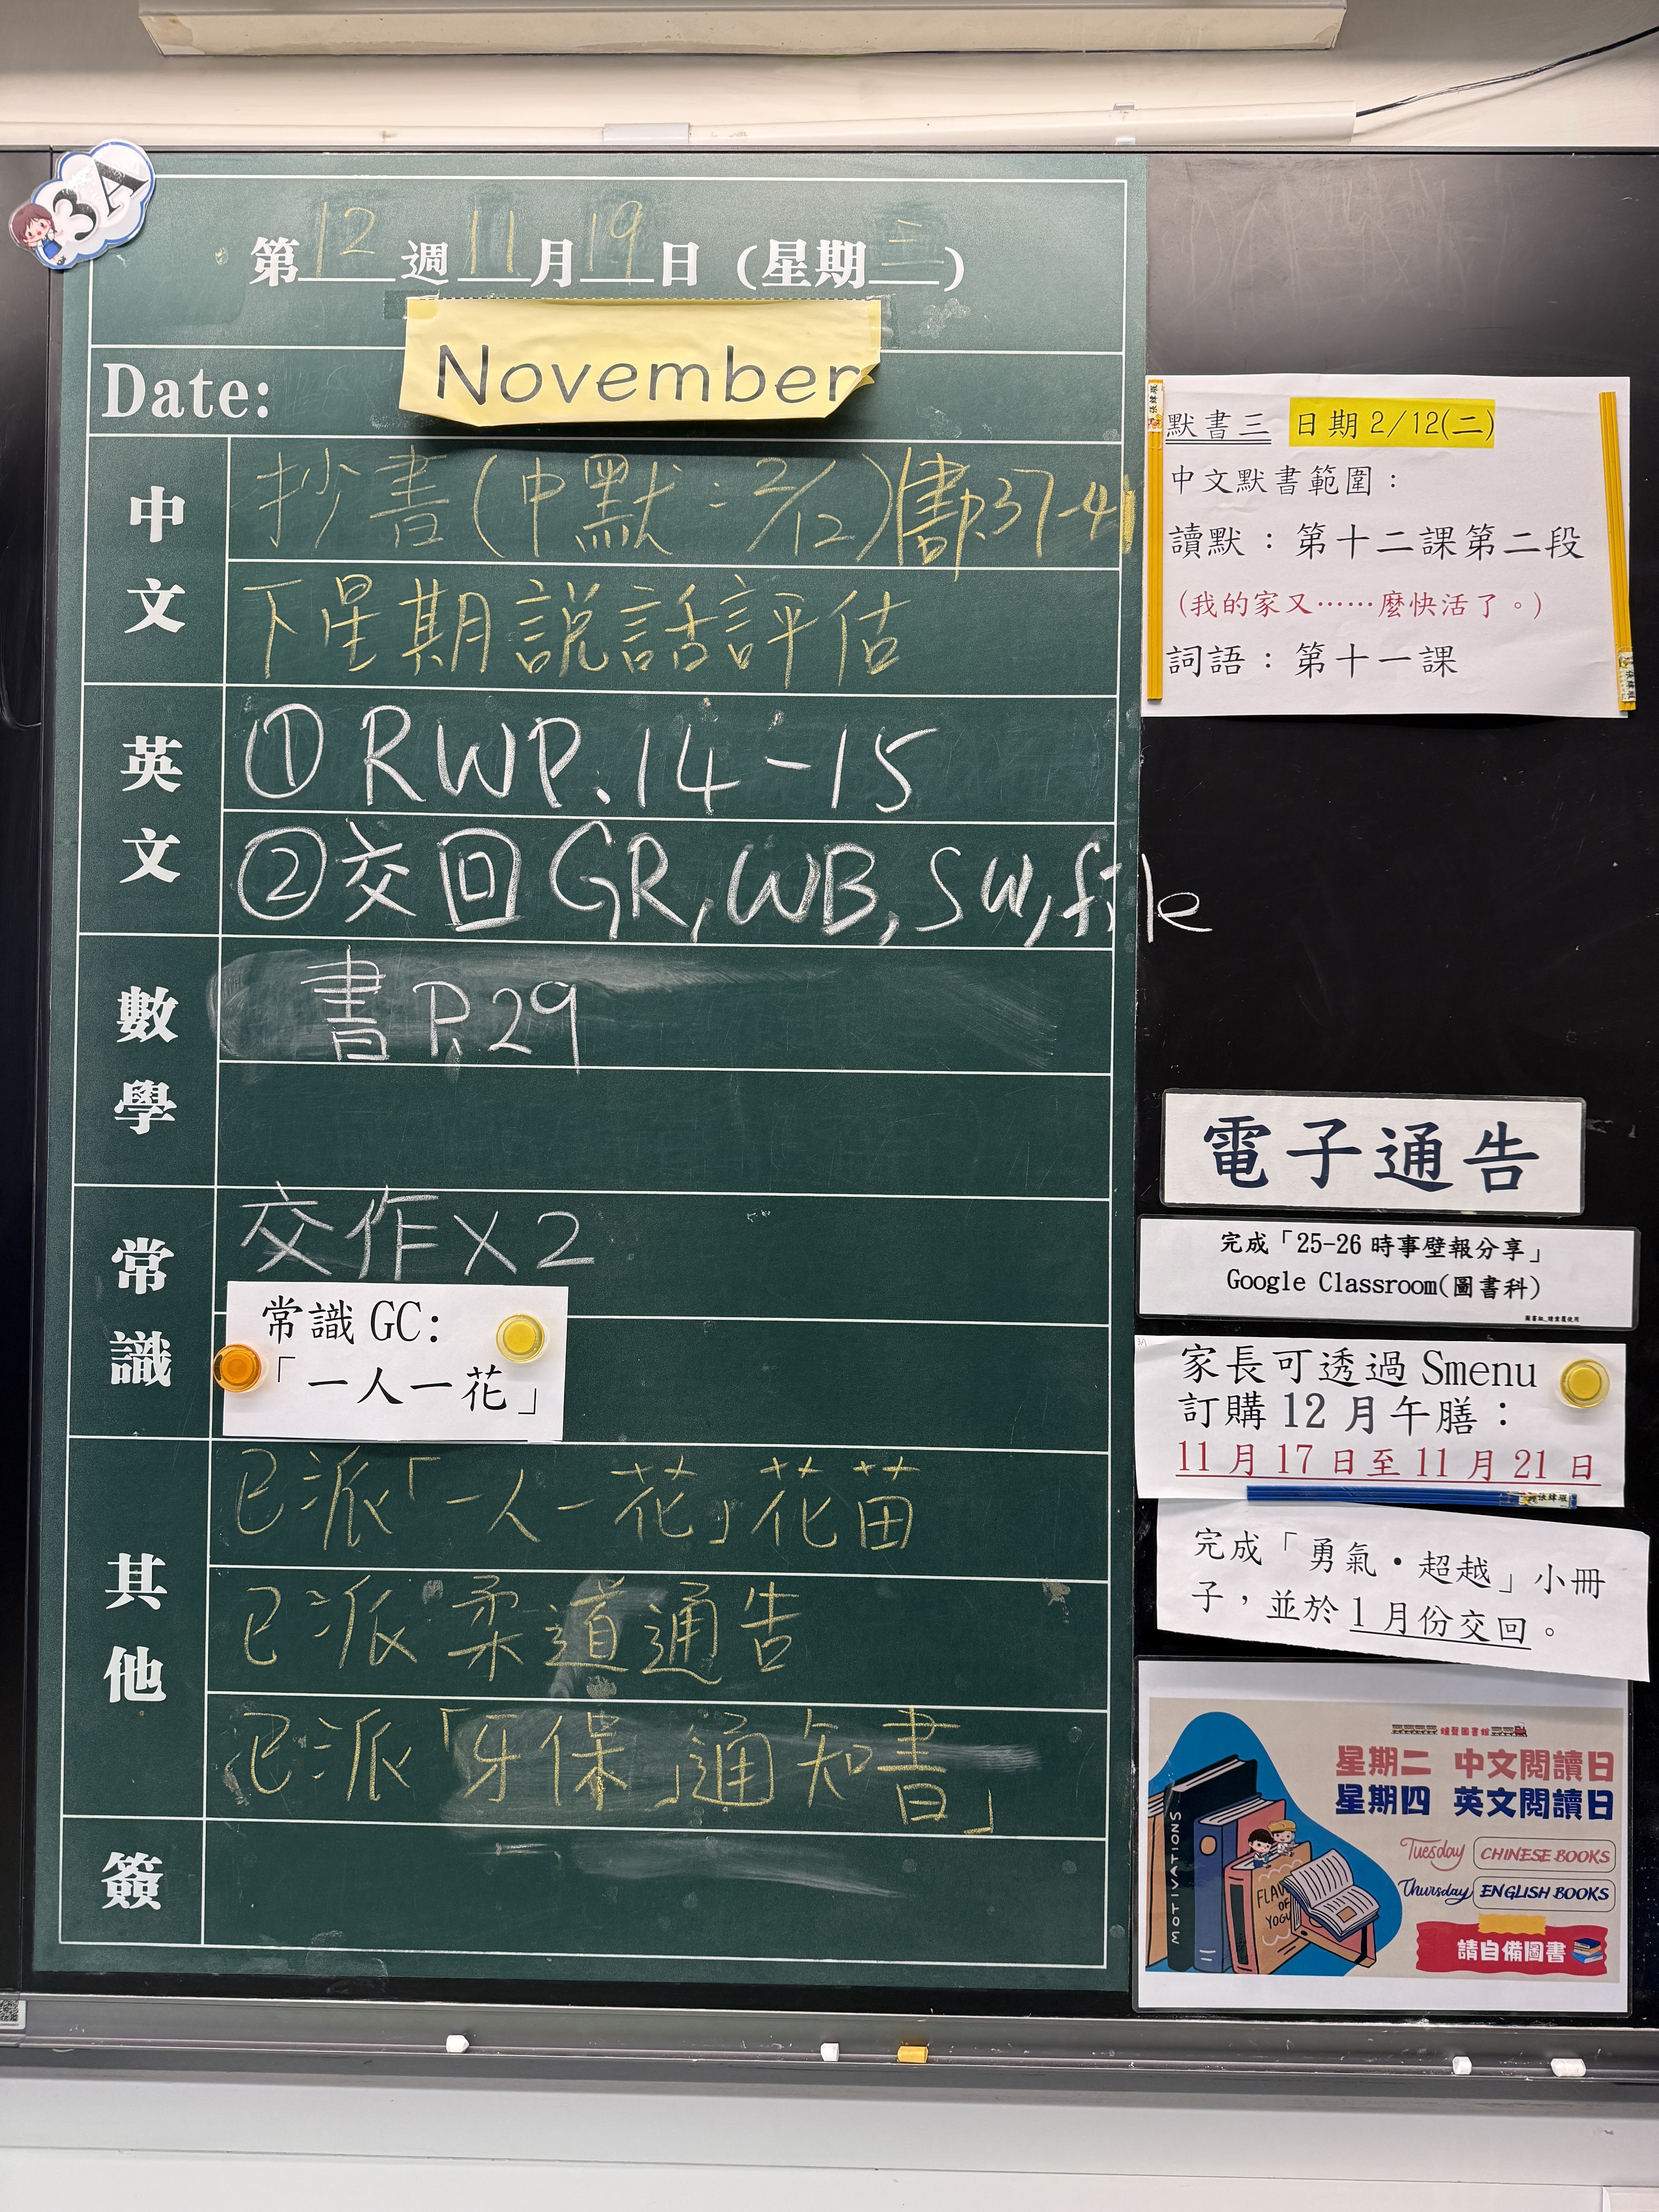 3A
第12週11月19日（星期三）
Date:
November
中文
抄書(中默:2/12) 書P.37-41
下星期說話評估
英文
① RWP.14-15
②交回GR,WB,SW,file
數學
書P.29
常識
交作X2
常識 GC:
「一人一花」
其他
已派「一人一花」花苗
已派柔道通告
已派「牙保」通知書」
簽
默書三 日期 2/12(二)
中文默書範圍：
讀默：第十二課第二段
（我的家又……麼快活了。）
詞語：第十一課
電子通告
完成「25-26 時事壁報分享」
Google Classroom(圖書科)
3A
家長可透過 Smenu
訂購 12 月午膳：
11 月 17 日至 11 月 21 日
完成「勇氣・超越」小冊
子，並於 1 月份交回。
星期二 中文閱讀日
星期四 英文閱讀日
Tuesday CHINESE BOOKS
Thursday ENGLISH BOOKS
請自備圖書
MOTIVATIONS
FLAV
OF
YOGU